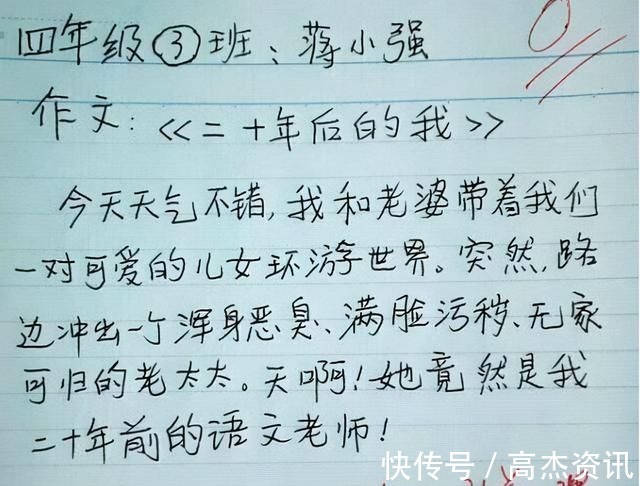 四年级③班：蒋小强
0
作文：《二十年后的我》
今天天气不错，我和老婆带着我们
一对可爱的儿女环游世界。突然，路
边冲出一个浑身恶臭、满脸污秽、无家
可归的老太太。天啊！她竟然是我
二十年前的语文老师！
快传号／高杰资讯